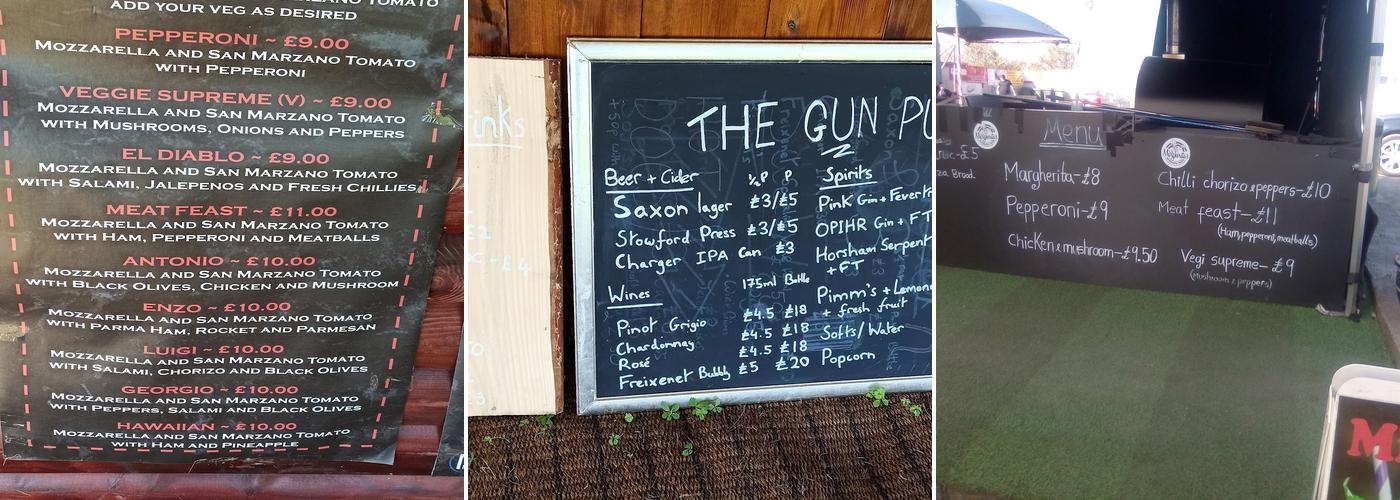 MOZZARELLA AND SAN MARZANO TOMATO
ADD YOUR VEG AS DESIRED
PEPPERONI ~ £9.00
MOZZARELLA AND SAN MARZANO TOMATO
WITH PEPPERONI
VEGGIE SUPREME (V) ~ £9.00
MOZZARELLA AND SAN MARZANO TOMATO
WITH MUSHROOMS, ONIONS AND PEPPERS
EL DIABLO ~ £9.00
MOZZARELLA AND SAN MARZANO TOMATO
WITH SALAMI, JALEPENOS AND FRESH CHILLIES
MEAT FEAST ~ £11.00
MOZZARELLA AND SAN MARZANO TOMATO
WITH HAM, PEPPERONI AND MEATBALLS
ANTONIO ~ £10.00
MOZZARELLA AND SAN MARZANO TOMATO
WITH BLACK OLIVES, CHICKEN AND MUSHROOM
ENZO ~ £10.00
MOZZARELLA AND SAN MARZANO TOMATO
WITH PARMA HAM, ROCKET AND PARMESAN
LUIGI ~ £10.00
MOZZARELLA AND SAN MARZANO TOMATO
WITH SALAMI, CHORIZO AND BLACK OLIVES
GEORGIO ~ £10.00
MOZZARELLA AND SAN MARZANO TOMATO
WITH PEPPERS, SALAMI AND BLACK OLIVES
HAWAIIAN ~ £10.00
MOZZARELLA AND SAN MARZANO TOMATO
WITH HAM AND PINEAPPLE
inks
THE GUN PU
Beer + Cider ½P P
Saxon lager £3/£5
Stowford Press £3/£5
Charger IPA Can £3
Wines 175ml Bottle
Pinot Grigio £4.5 £18
Chardonnay £4.5 £18
Rosé £4.5 £18
Freixenet Bubbly £5 £20
Spirits
Pink Gin + Fevertr
OPIHR Gin + FT
Horsham Serpent
+ FT
Pimm's + Lemona
+ fresh fruit
Softs/Water
Popcorn
Menu
Margherita-£8
Pepperoni-£9
Chicken & mushroom-£9.50
Chilli chorizo & peppers-£10
Meat feast-£11
(Ham, pepperoni, meatballs)
Vegi supreme-£9
(Mushroom & peppers)